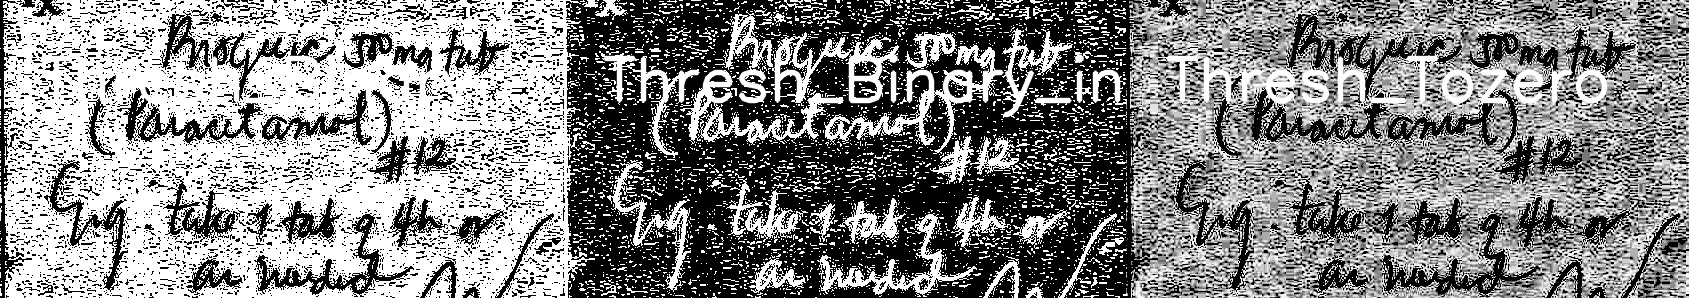 500mg tab
(Paracetamol)
#12
Sig: take 1 tab q 4h or
as needed
Thresh_Binary_in
500mg tab
(Paracetamol)
#12
Sig: take 1 tab q 4h or
as needed
Thresh_Tozero
500mg tab
(Paracetamol)
#12
Sig: take 1 tab q 4h or
as needed